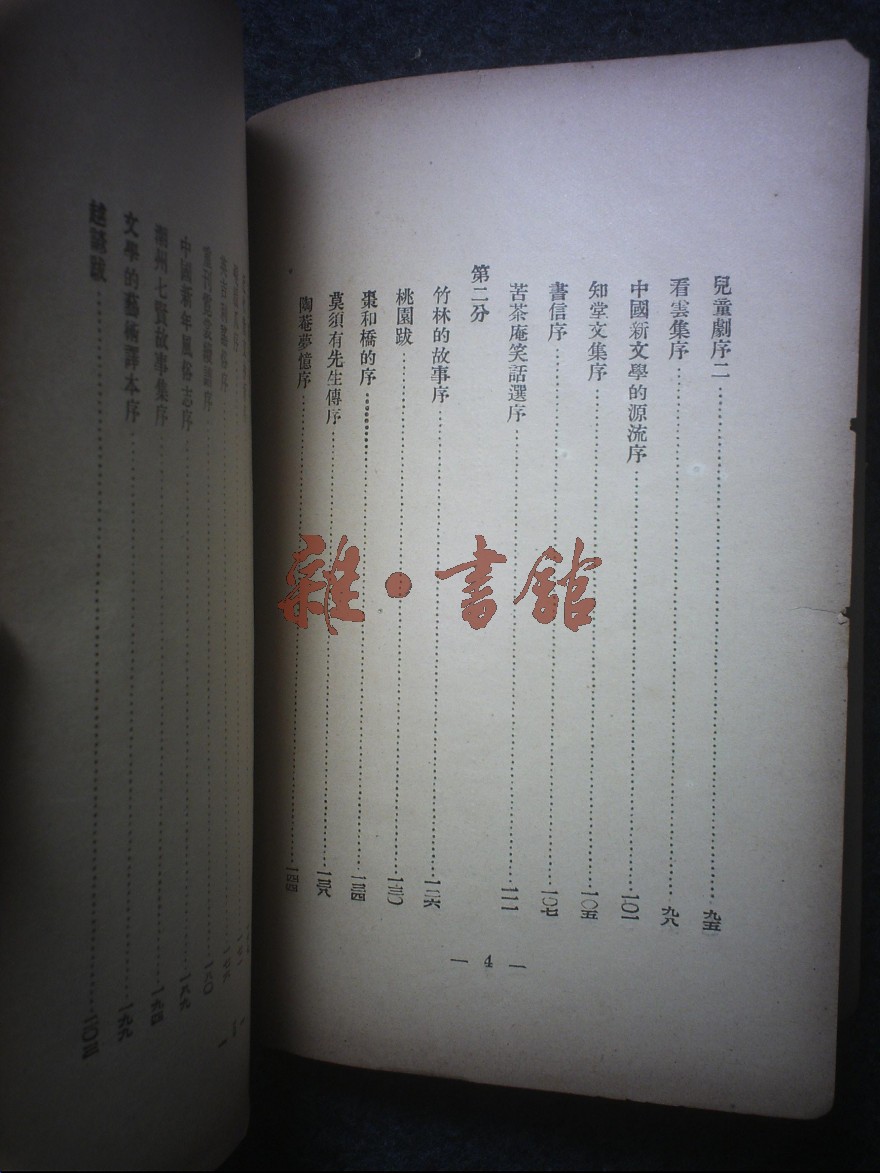 兒童劇序二……九五
看雲集序……九八
中國新文學的源流序……一〇一
知堂文集序……一〇五
書信序……一〇七
苦茶庵笑話選序……一一一
第二分
竹林的故事序……一二六
桃園跋……一三〇
棗和橋的序……一三四
莫須有先生傳序……一三八
陶菴夢憶序……一四四
— 4 —
中國新年風俗志序……一八九
潮州七賢故事集序……一九四
文學的藝術譯本序……一九九
越諺跋……二〇三
雜·書舘